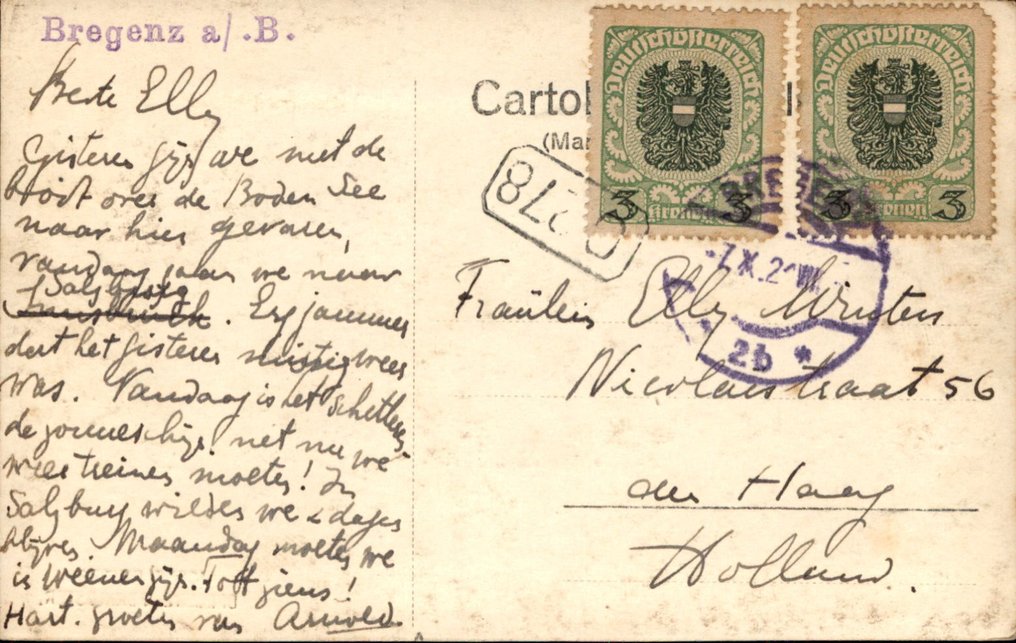 Bregenz a/.B.
Beste Elly
Gisteren zijn we met de
boot over de Boden See
naar hier gevaren,
vandaag gaan we naar
Salzburg
Innsbruck. Erg jammer
dat het gisteren mistig weer
was. Vandaag is het schitteren
de zonneschijn, net nu we
weer treinen moeten! In
Salzburg wilden we 2 dagen
blijven. Maandag moeten we
in Weenen zijn. Tot ziens!
Hart. groeten van Arnold.
Cartol
(Mar
278
Deutschösterreich
3 Kronen 3
Deutschösterreich
3 Kronen 3
BREGENZ
7.X.2 VII
2b *
Fräulein Elly
Nicolaistraat 56
den Haag
Holland.